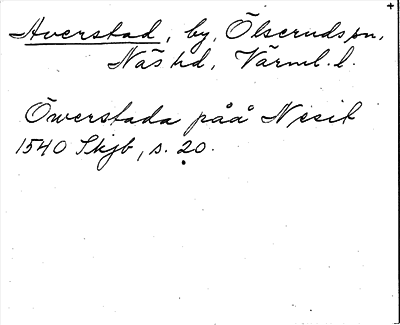 Averstad, by, Ölseruds sn,
Näs hd, Värml. l.
Öwerstada påå Nesit
1540 Skjb, s. 20.